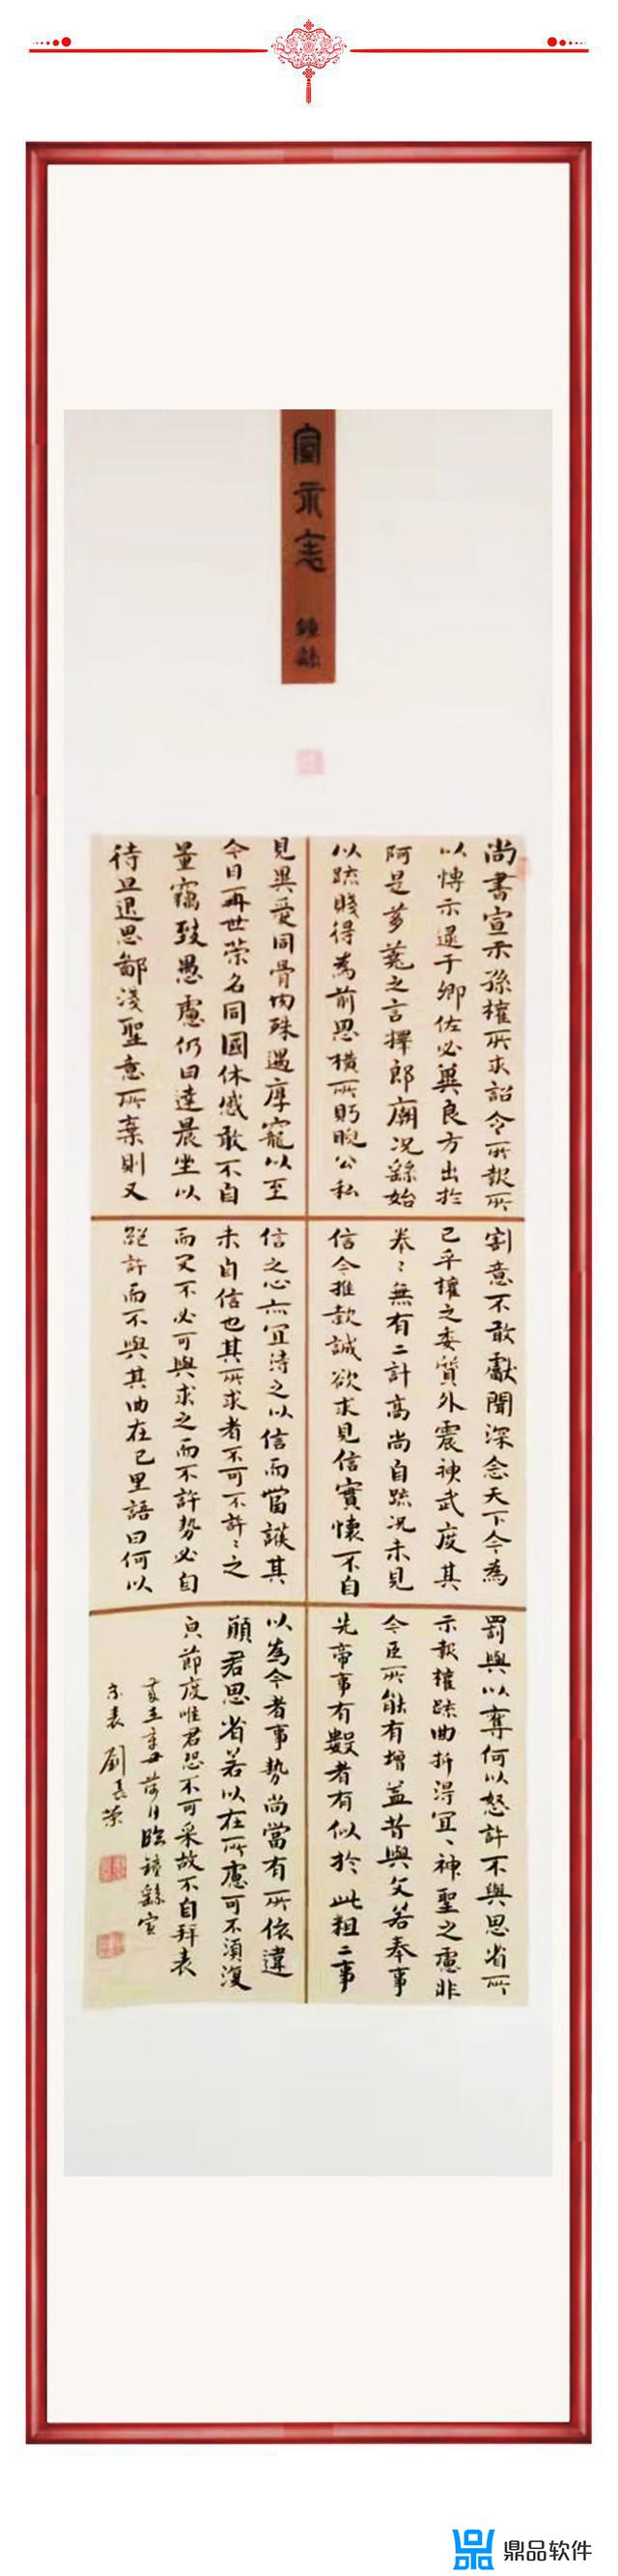 宣示表 鍾繇
尚書宣示孫權所求詔令所報所
以博示逮于卿佐必冀良方出於
阿是芻蕘之言擇郎廟況繇始
以疏賤得為前恩橫所盻睨公私
見異愛同骨肉殊遇厚寵以至
今日再世榮名同國休慼敢不自
量竊致愚慮仍日達晨坐以
待旦退思鄙淺聖意所棄則又
割意不敢獻聞深念天下今為
已平權之委質外震神武度其
拳〻無有二計高尚自疏況未見
信今推款誠欲求見信實懷不自
信之心亦宜待之以信而當護其
未自信也其所求者不可不許〻之
而反不必可與求之而不許勢必自
絕許而不與其曲在己里語曰何以
罰與以奪何以怒許不與思省所
示報權疏曲折得宜〻神聖之慮非
今臣所能有增益昔與文若奉事
先帝事有數者有似於此粗二事
以為今者事勢尚當有所依違
願君思省若以在所慮可不須復
皃節度唯君恐不可采故不自拜表
辛丑荷月臨鍾繇宣
示表 劉長榮
鼎品软件